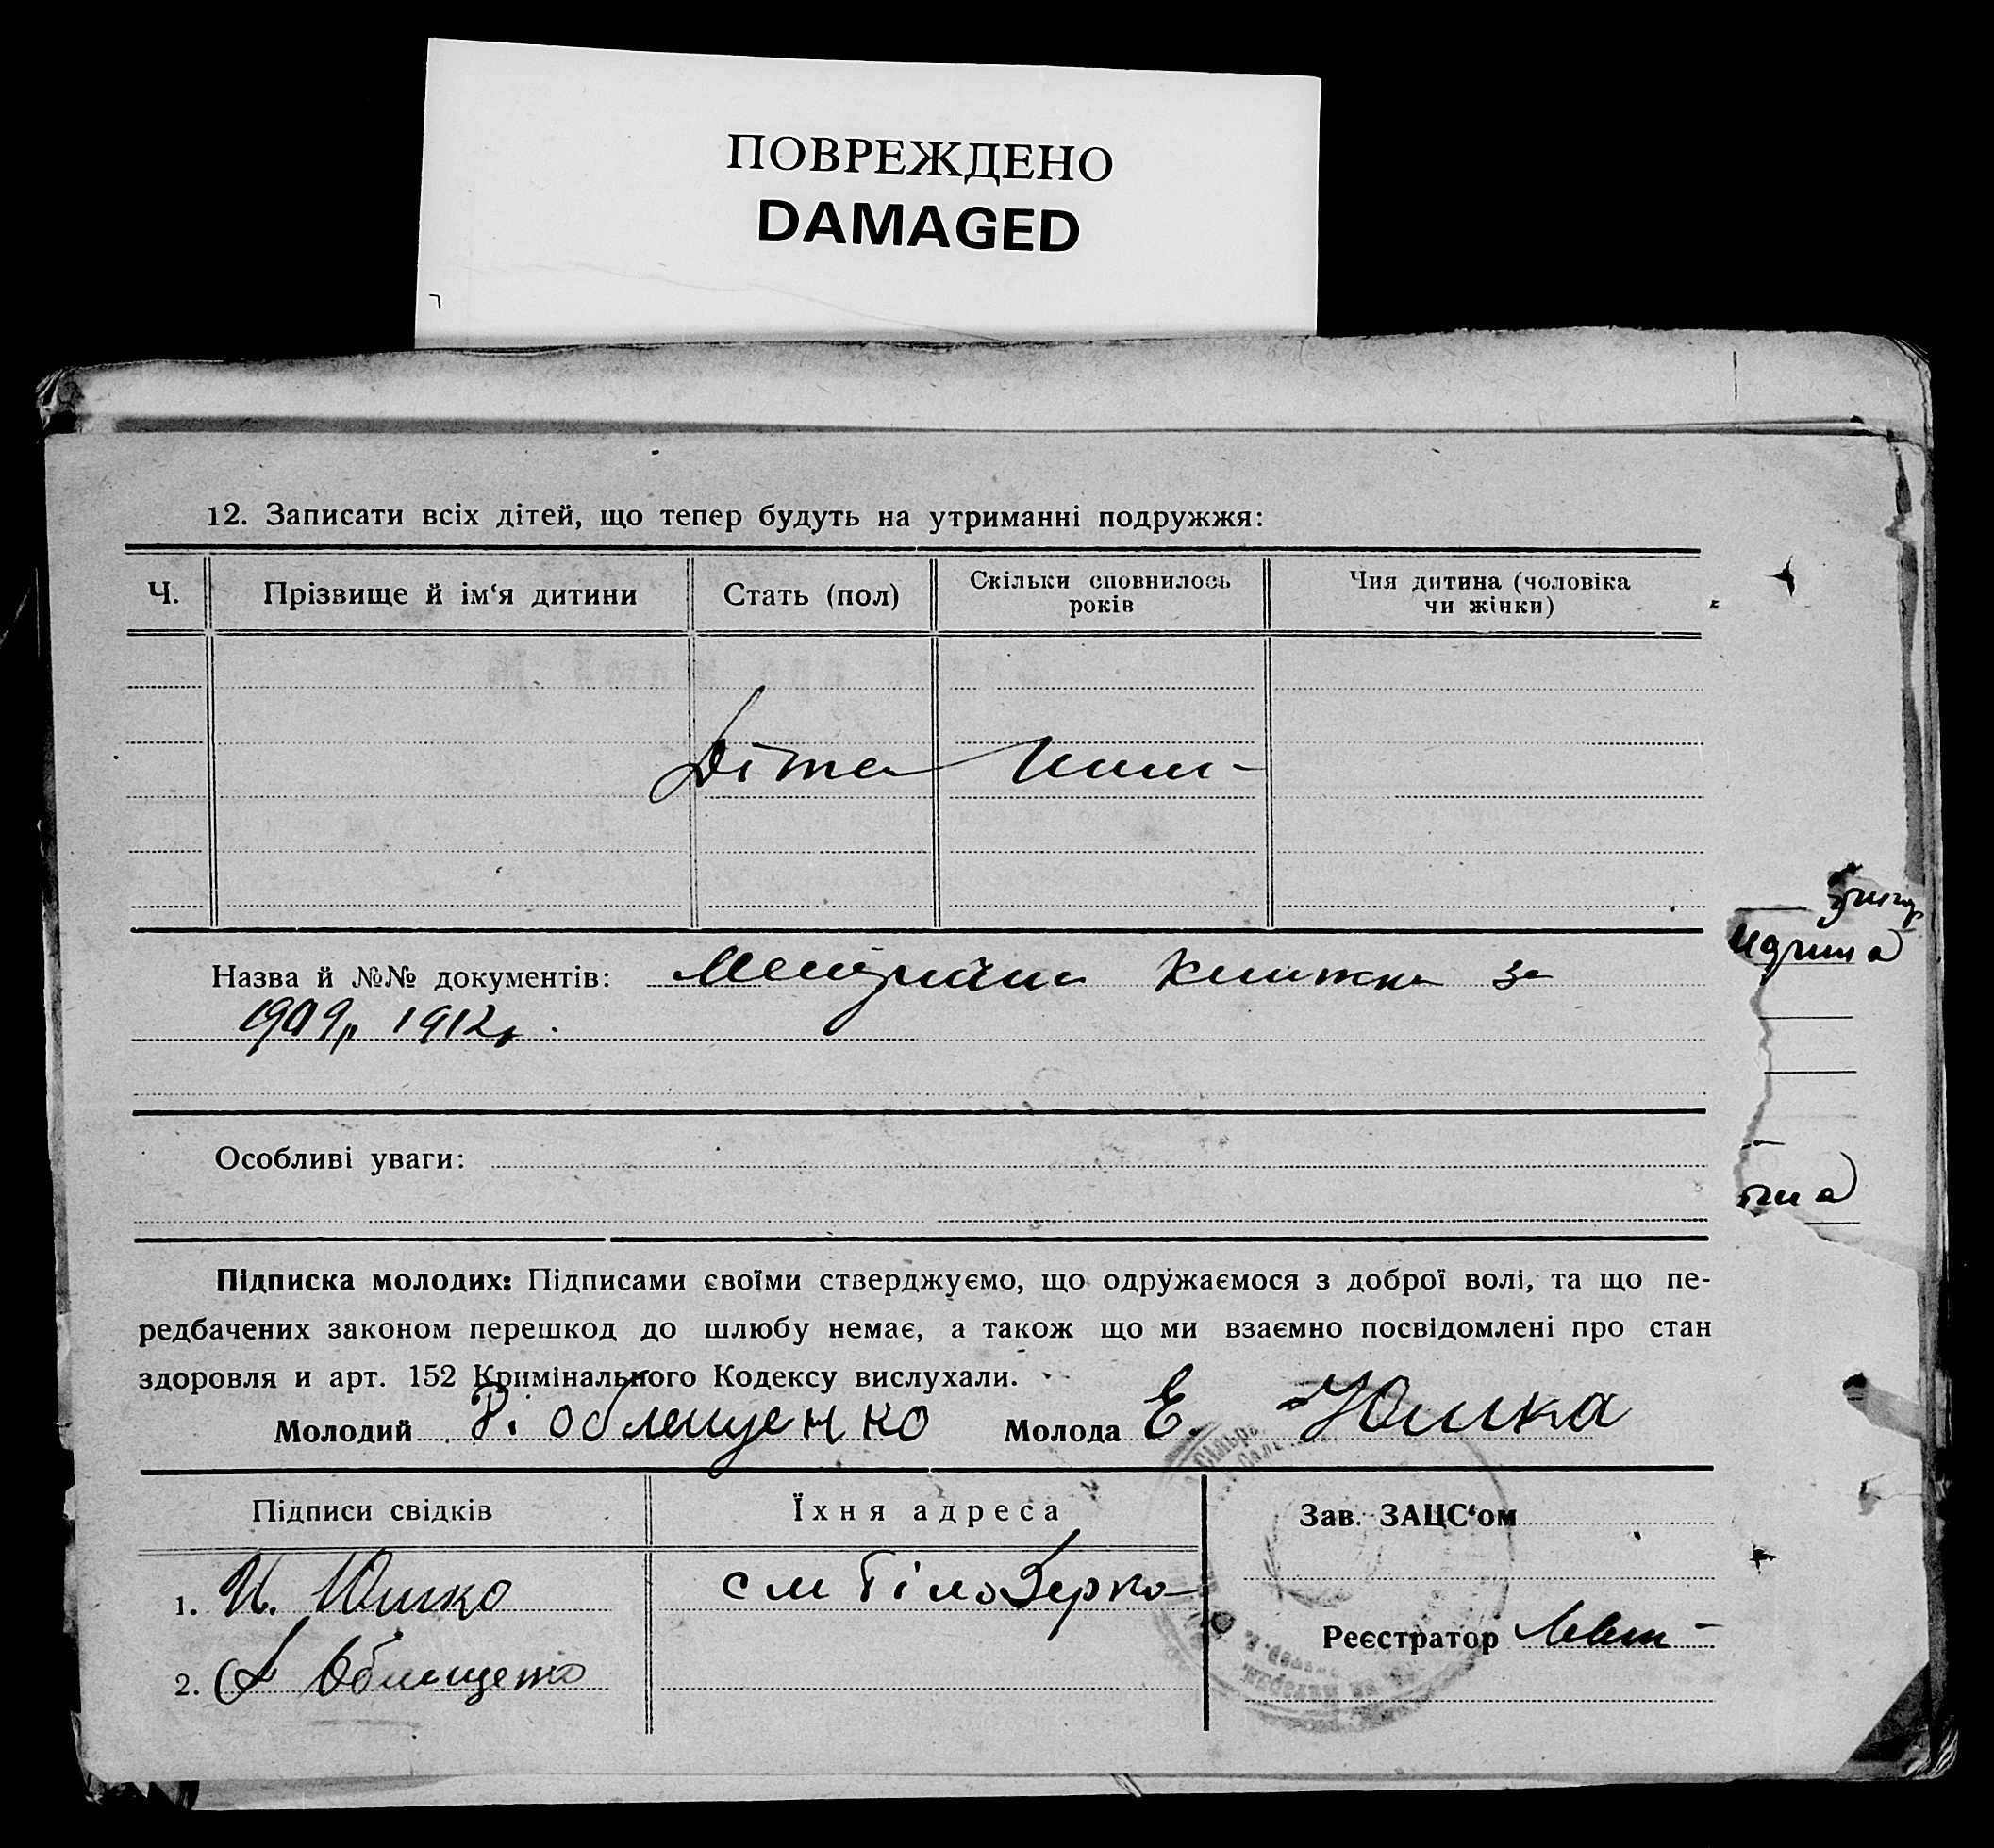 ПОВРЕЖДЕНО
DAMAGED
12. Записати всіх дітей, що тепер будуть на утриманні подружжя:
Ч. Прізвище й ім‘я дитини Стать (пол) Скільки сповнилось років Чия дитина (чоловіка чи жінки)
Діти
Назва й №№ документів: Метрична книжка за
1909р 1912р.
Особливі уваги:
Підписка молодих: Підписами своїми стверджуємо, що одружаємося з доброї волі, та що пе-
редбачених законом перешкод до шлюбу немає, а також що ми взаємно посвідомлені про стан
здоровля и арт. 152 Кримінального Кодексу вислухали.
Молодий Облещенко Молода Е. Юшка
Підписи свідків Їхня адреса Зав. ЗАЦС‘ом
1. И. Юшко см
Реєстратор
2.